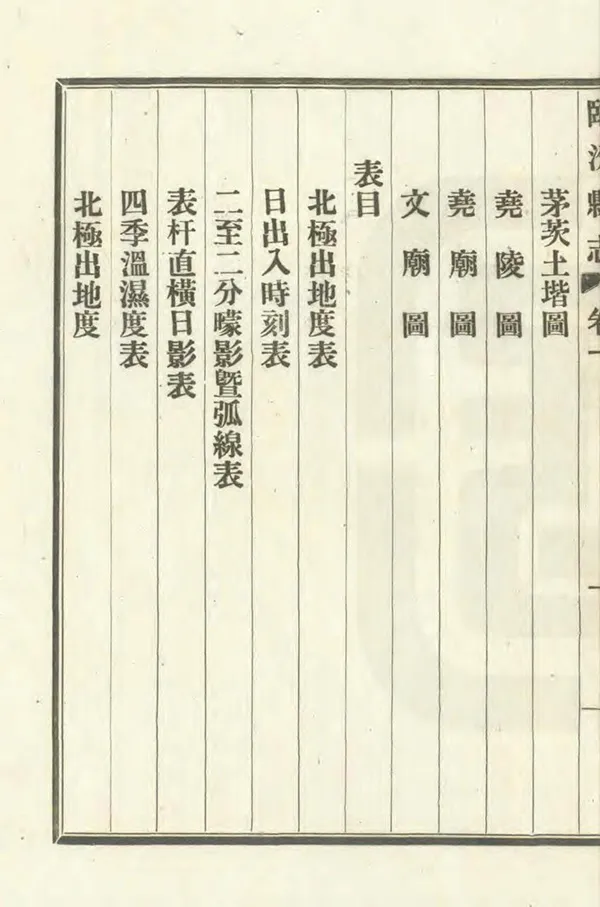 臨汾縣志 卷一
茅茨土堦圖
堯陵圖
堯廟圖
文廟圖
表目
北極出地度表
日出入時刻表
二至二分曚影曁弧線表
表杆直橫日影表
四季溫濕度表
北極出地度